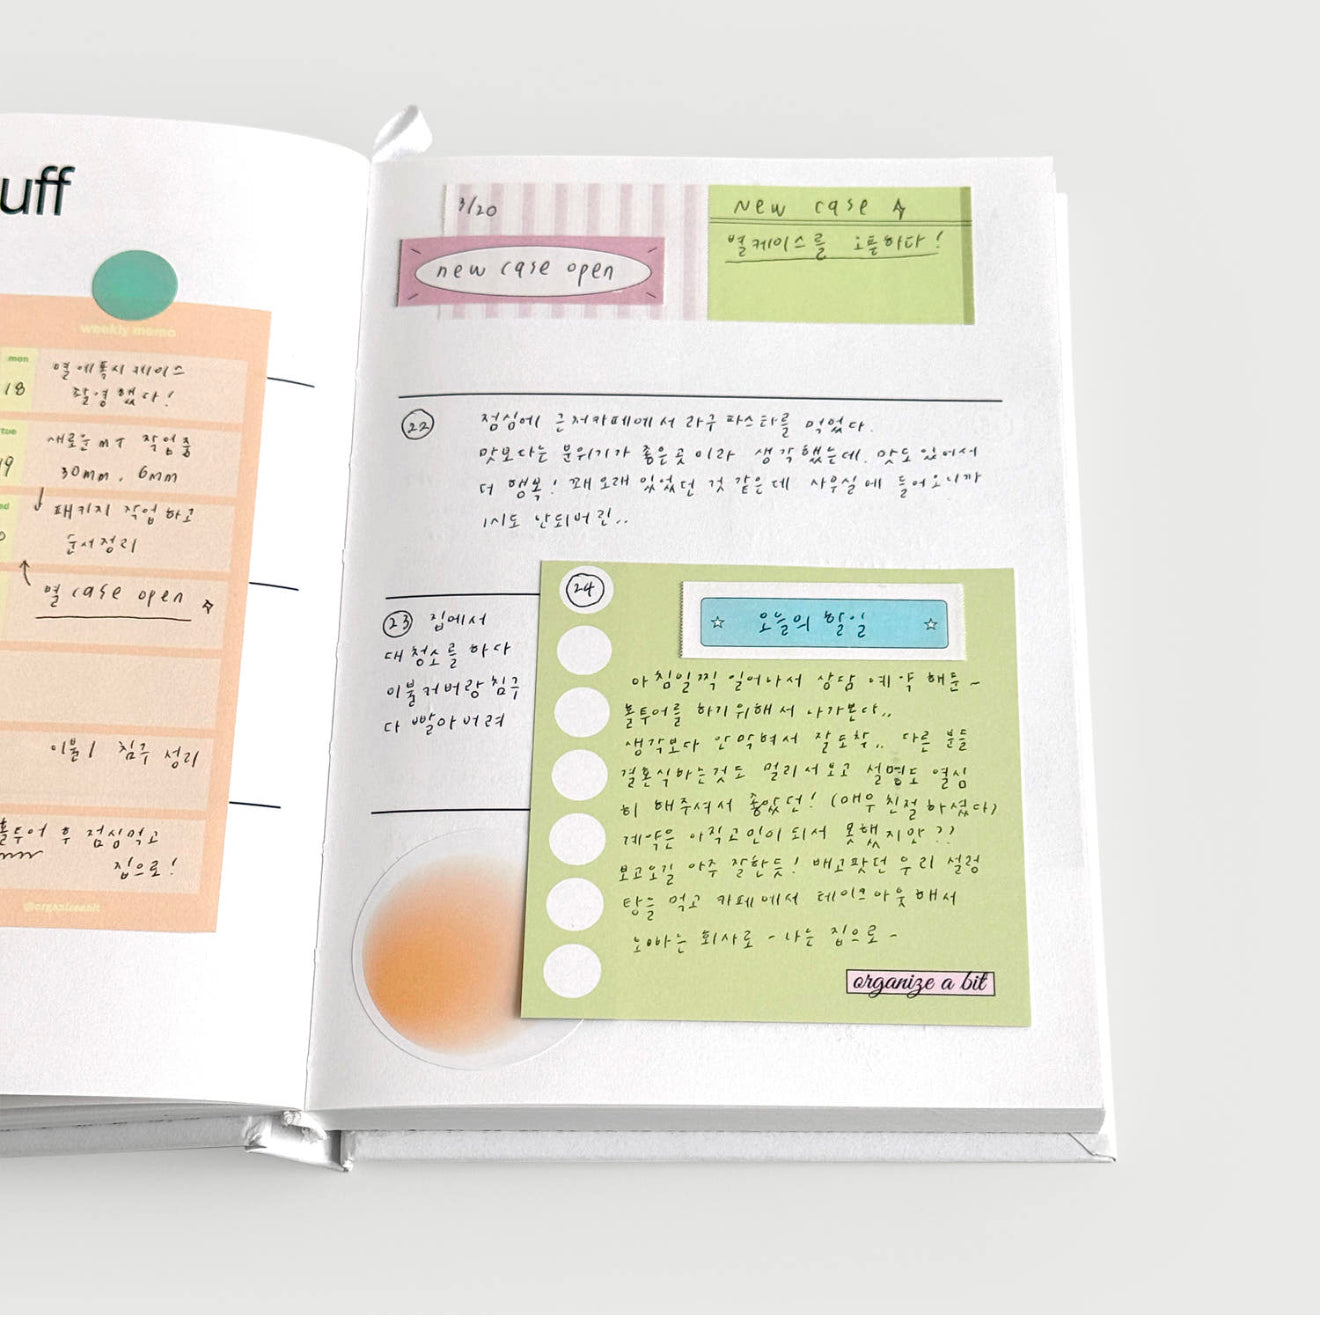 uff
weekly memo
mon
18
별 에폭시 케이스
촬영했다!
tue
19
새로운 MT 작업중
30mm, 6mm
패키지 작업하고
문서정리
별 case open
이불 / 침구 정리
홀투어 후 점심먹고
집으로!
@organizeabit
3/20
new case open
New case
별케이스를 오픈하다!
22
점심에 근처카페에서 라구 파스타를 먹었다.
맛보다는 분위기가 좋은곳이라 생각했는데. 맛도 있어서
더 행복! 꽤 오래 있었던 것 같은데 사무실에 들어오니까
1시도 안되버린..
23 집에서
대청소를 하다
이불커버랑 침구
다 빨아버려
24
오늘의 할일
아침일찍 일어나서 상담 예약 해둔~
홀투어를 하기위해서 나가본다..
생각보다 안막혀서 잘도착.. 다른 분들
결혼식하는것도 멀리서보고 설명도 열심
히 해주셔서 좋았던! (매우 친절하셨다)
계약은 아직고민이 되서 못했지만??
보고오길 아주 잘한듯! 배고팠던 우리 설렁
탕을 먹고 카페에서 테이크아웃해서
오빠는 회사로 - 나는 집으로 -
organize a bit